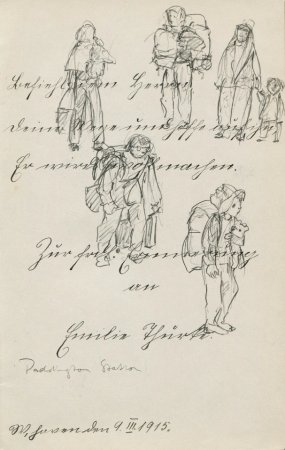 Befiehl dem Herrn
Deine Wege und hoffe auf ihn
Er wird's wohl machen.
Zur frdl. Erinnerung
an
Emilie
Paddington Station
W,haven den 9. III. 1915.